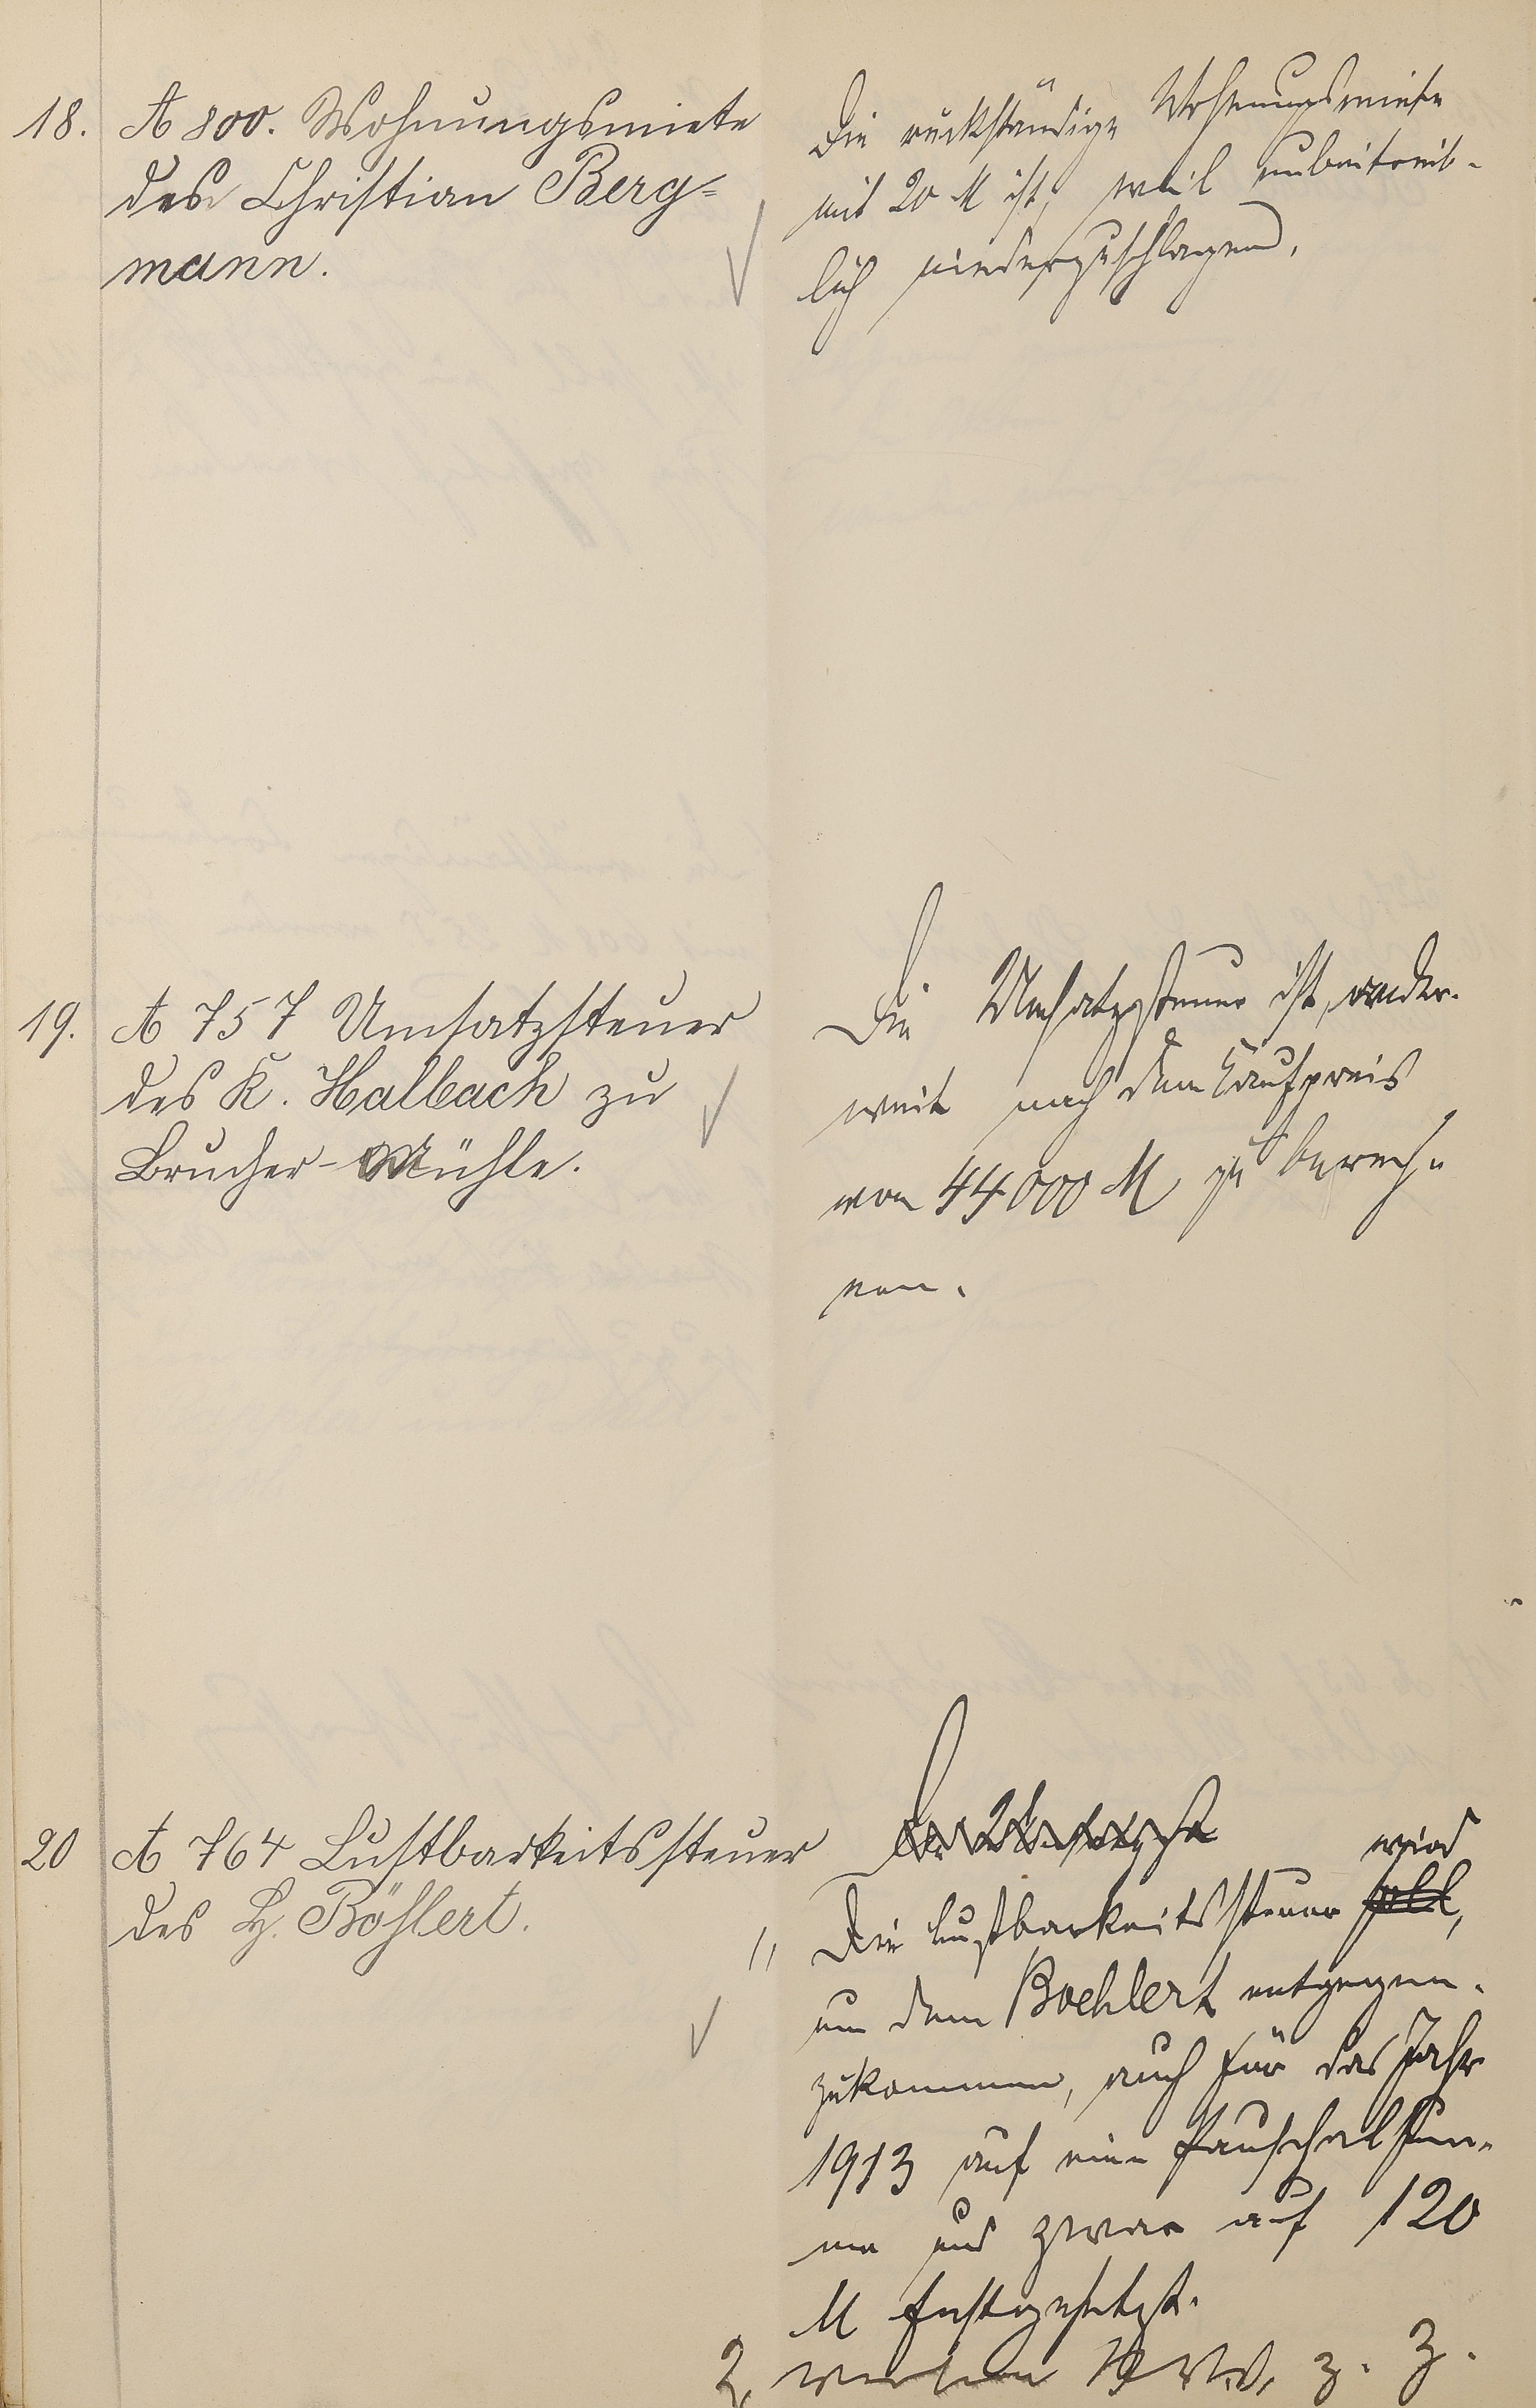 18. A 800. Wohnungsmiete
des Christian Berg=
mann.
Die rückständige Wohnungsmiete
mit 20 M ist, weil unbeitreib-
lich niederzuschlagen.
19. A 757 Umsatzsteuer
des K. Halbach zu
Brucher-Mühle.
Die Umsatzsteuer ist, ander-
weit nach dem Kaufpreis
von 44000 M zu berech-
nen.
20 A 764 Lustbarkeitssteuer
des H. Böhlert.
Die Umsatzst
wird
1, Die Lustbarkeitssteuer soll,
um dem Boehlert entgegen-
zukommen, auch für das Jahr
1913 auf eine Pauschalsum-
me und zwar auf 120
M festgesetzt.
2, z. Z.